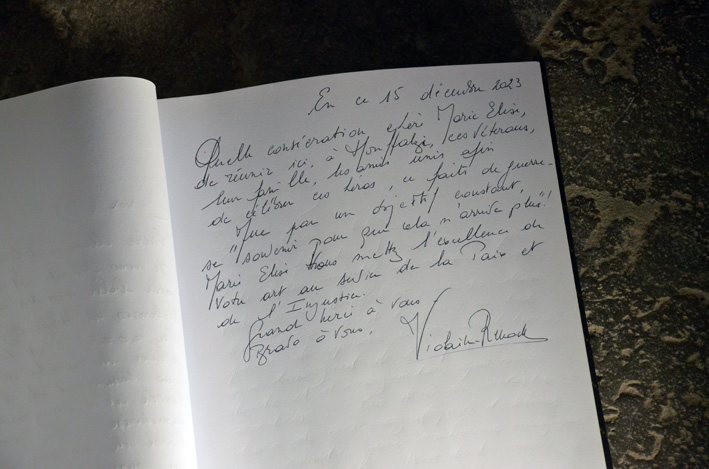 En ce 15 décembre 2023
Quelle considération chère Marie Elise,
de réunir ici, à Houffalize, ces vétérans,
leur famille, les amis unis afin
de célébrer ces héros, ce faits de guerre.
Mue par un objectif constant,
se "souvenir pour que cela n'arrive plus"!
Marie Elise vous mettez l'excellence de
votre art au service de la Paix et
de l'Injustice.
Grand merci à vous
Bravo à vous.